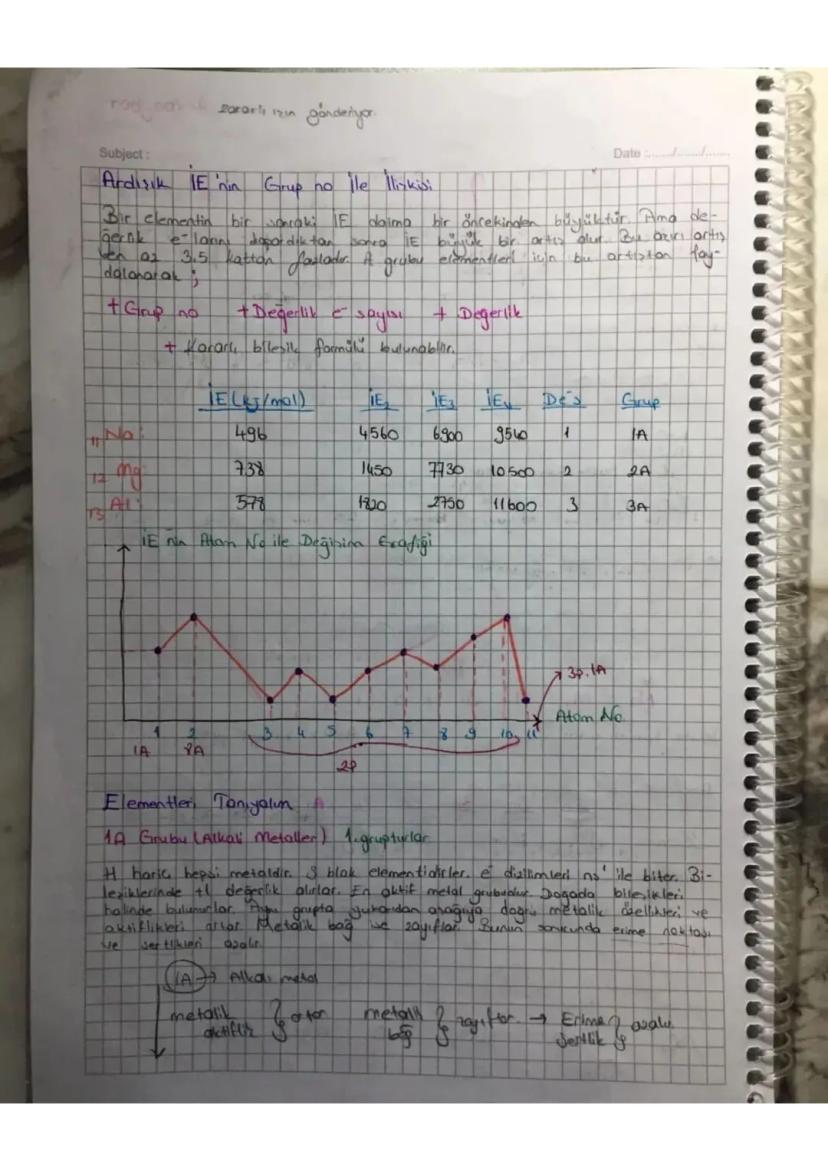 zararlı izin gönderiyor.
Subject : Date : ....../....../......
Ardışık İE'nin Grup no İle İlişkisi
Bir elementin bir sonraki İE daima bir öncekinden büyüktür. Ama de-
ğerlik e-larını kopardıktan sonra İE büyük bir artış olur. Bu aşırı artış
en az 3,5 kattan fazladır. A grubu elementleri için bu artıştan fay-
dalanarak ;
+ Grup no + Değerlik e- sayısı + Değerlik
+ Kararlı bileşik formülü bulunabilir.
İE (kJ/mol) İE2 İE3 İE4 De's Grup
11Na: 496 4560 6900 9540 1 1A
12 Mg: 738 1450 7730 10500 2 2A
13 Al: 578 1820 2750 11600 3 3A
İE'nin Atom No ile Değişim Grafiği
3p. 1A
Atom No
1 2 3 4 5 6 7 8 9 10 11
1A 8A
2p
Elementleri Tanıyalım A
1A Grubu (Alkali Metaller) 1. grupturlar
H hariç hepsi metaldir. S blok elementidirler. e- dizilimleri ns¹ ile biter. Bi-
leşiklerinde +1 değerlik alırlar. En aktif metal grubudur. Doğada bileşikleri
halinde bulunurlar. Aynı grupta yukarıdan aşağıya doğru metalik özellikleri ve
aktiflikleri artar. Metalik bağ ise zayıflar. Bunun sonucunda erime noktası
ve sertlikleri azalır.
1A → Alkali metal
metalik aktiflik } artar metalik bağ } zayıflar. → Erime Sertlik } azalır.